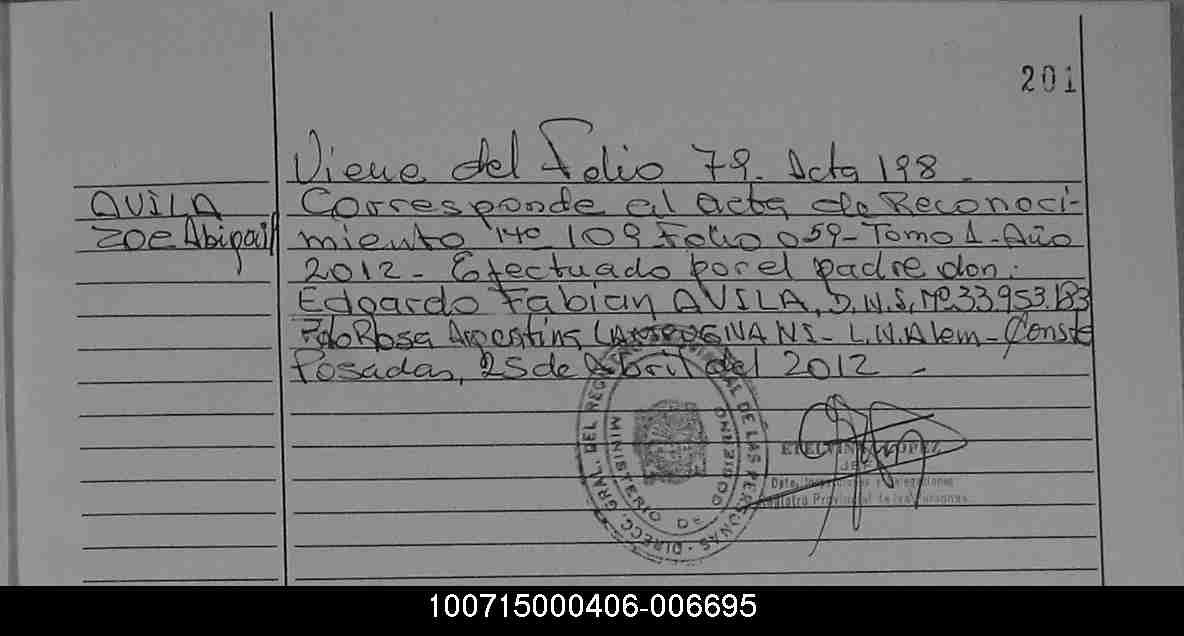 201
Viene del Folio 79. Acta 198 -
AVILA
Zoe Abigail
Corresponde al acta de Reconoci-
miento 140 109 Folio 059 - Tomo 1 - Año
2012 - Efectuado por el padre don:
Edgardo Fabian AVILA, D.N.I, Nº 33.953.183
Fdo Rosa Argentina - L.N.Alem - Conste
Posadas, 25 de Abril del 2012 -
DIRECC. GRAL. DEL REG DE LAS PERSONAS
MINISTERIO DE GOBIERNO
LOPEZ
JEF
Dpto. Inspecciones y Delegaciones
Registro Provincial de las Personas
100715000406-006695